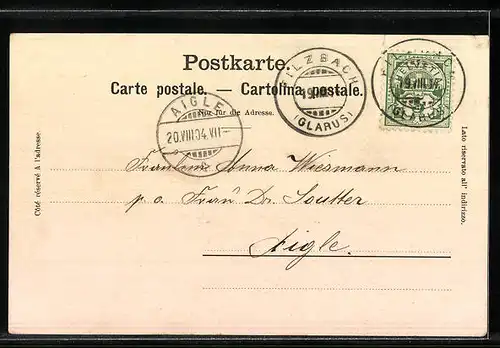 Postkarte.
Carte postale. — Cartolina postale.
Nur für die Adresse.
FILZBACH
(GLARUS)
HELVETIA
(GLARUS)
AIGLE
20.VIII.04.VII
Côté réservé à l'adresse.
Lato riservato all' indirizzo.
Fräulein Anna Wiesmann
p. a. Frau Dr. Soutter
Aigle.